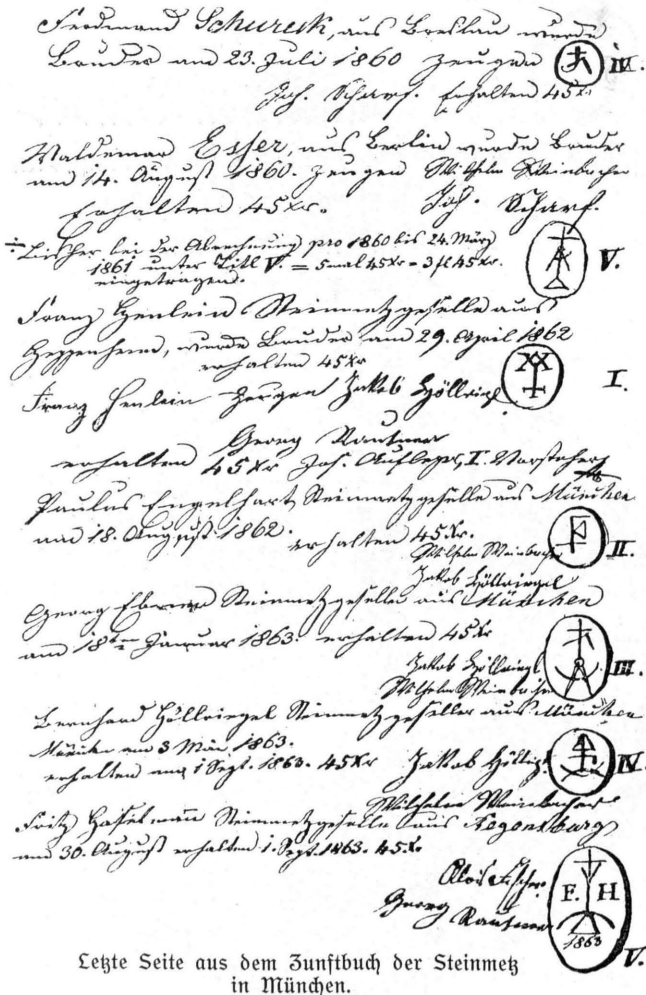 Ferdinand Schureck, aus Breslau wurde
Bruder am 23. Juli 1860 Zeugen IV.
Joh. Scharf. Erhalten 45xr
Waldemar Esser, aus Berlin wurde Bruder
am 14. August 1860. Zeugen Wilhelm Weinbacher
Erhalten 45xr. Joh. Scharf.
bei der Abrechnung pro 1860 bis 24. März
1861 unter Titl V. = 5 mal 45xr = 3 fl 45xr. V.
eingetragen.
Franz Henlein Steinmetzgeselle aus
Heppenheim, wurde Bruder am 29. April 1862
erhalten 45xr
Franz Henlein Zeugen Jakob Höllriegl I.
Georg Rautner
erhalten 45xr Jos. I. Vorsteher
Paulus Engelhart Steinmetzgeselle aus München
am 18. August 1862. erhalten 45xr. II.
Wilhelm Weinbacher
Jakob Höllriegel
Georg Steinmetzgeselle aus München
am 18ten Januar 1863. erhalten 45xr
Jakob Höllriegl III.
Wilhelm Weinbacher
Bernhard Höllriegel Steinmetzgeselle aus München
München am 3 Mai 1863.
erhalten am 1 Sept. 1863. 45xr Jakob IV.
Wilhelm Weinbacher
Fritz Haselmann Steinmetzgeselle aus Regensburg
am 30. August erhalten 1. Sept. 1863. 45xr
Alois Fischer F. H
Georg Rautner 1863
V.
Letzte Seite aus dem Zunftbuch der Steinmetz
in München.